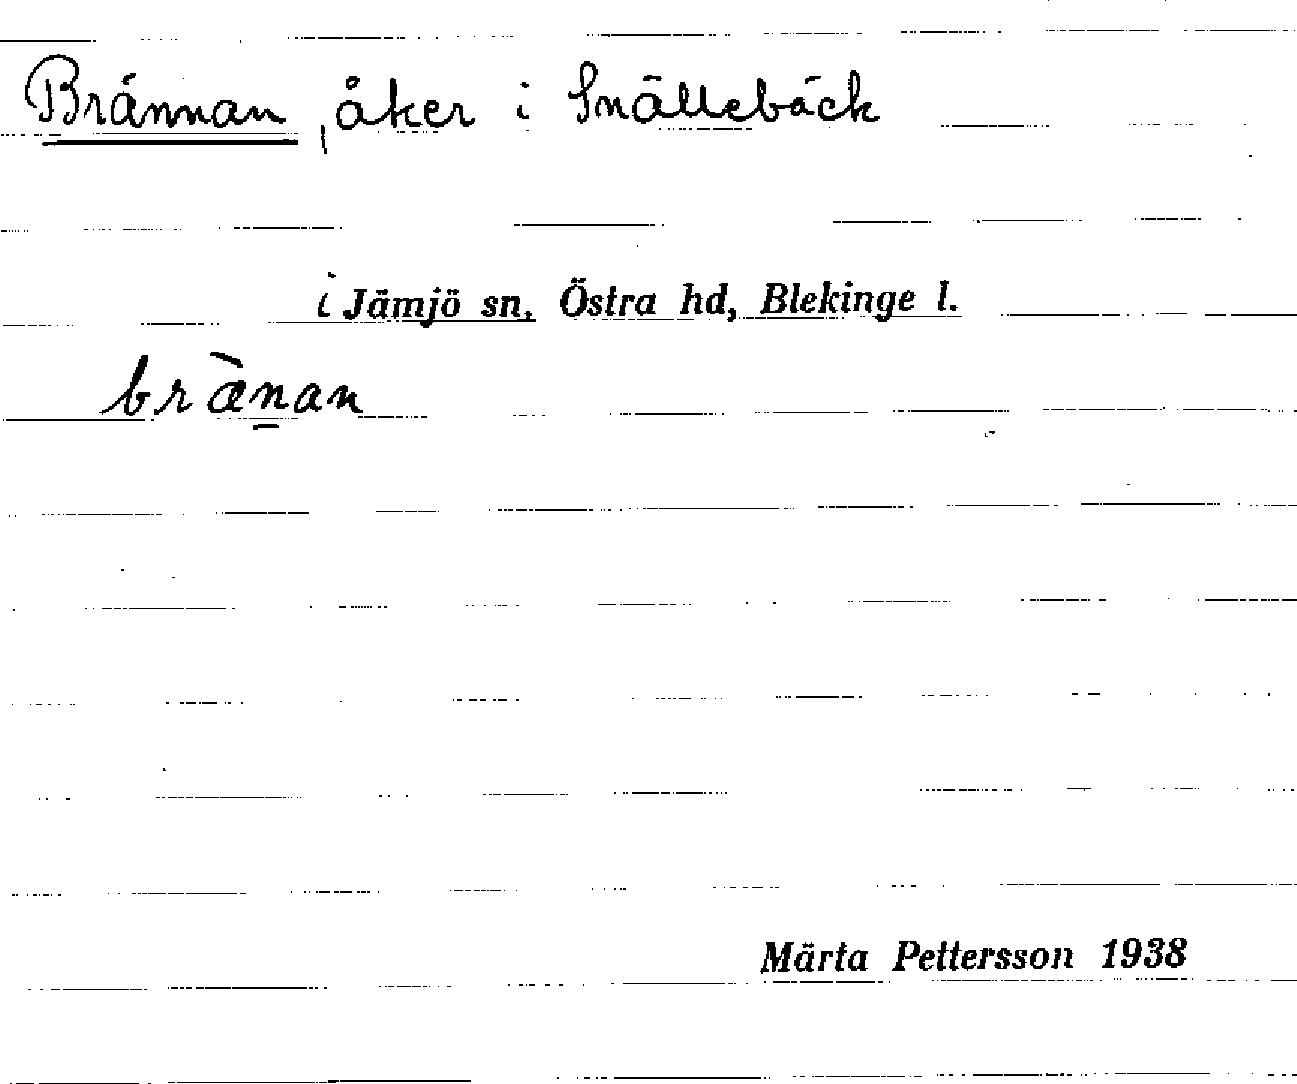 Brännan, åker i Snällebäck
i Jämjö sn, Östra hd, Blekinge l.
bræ̀n̲an
Märta Pettersson 1938